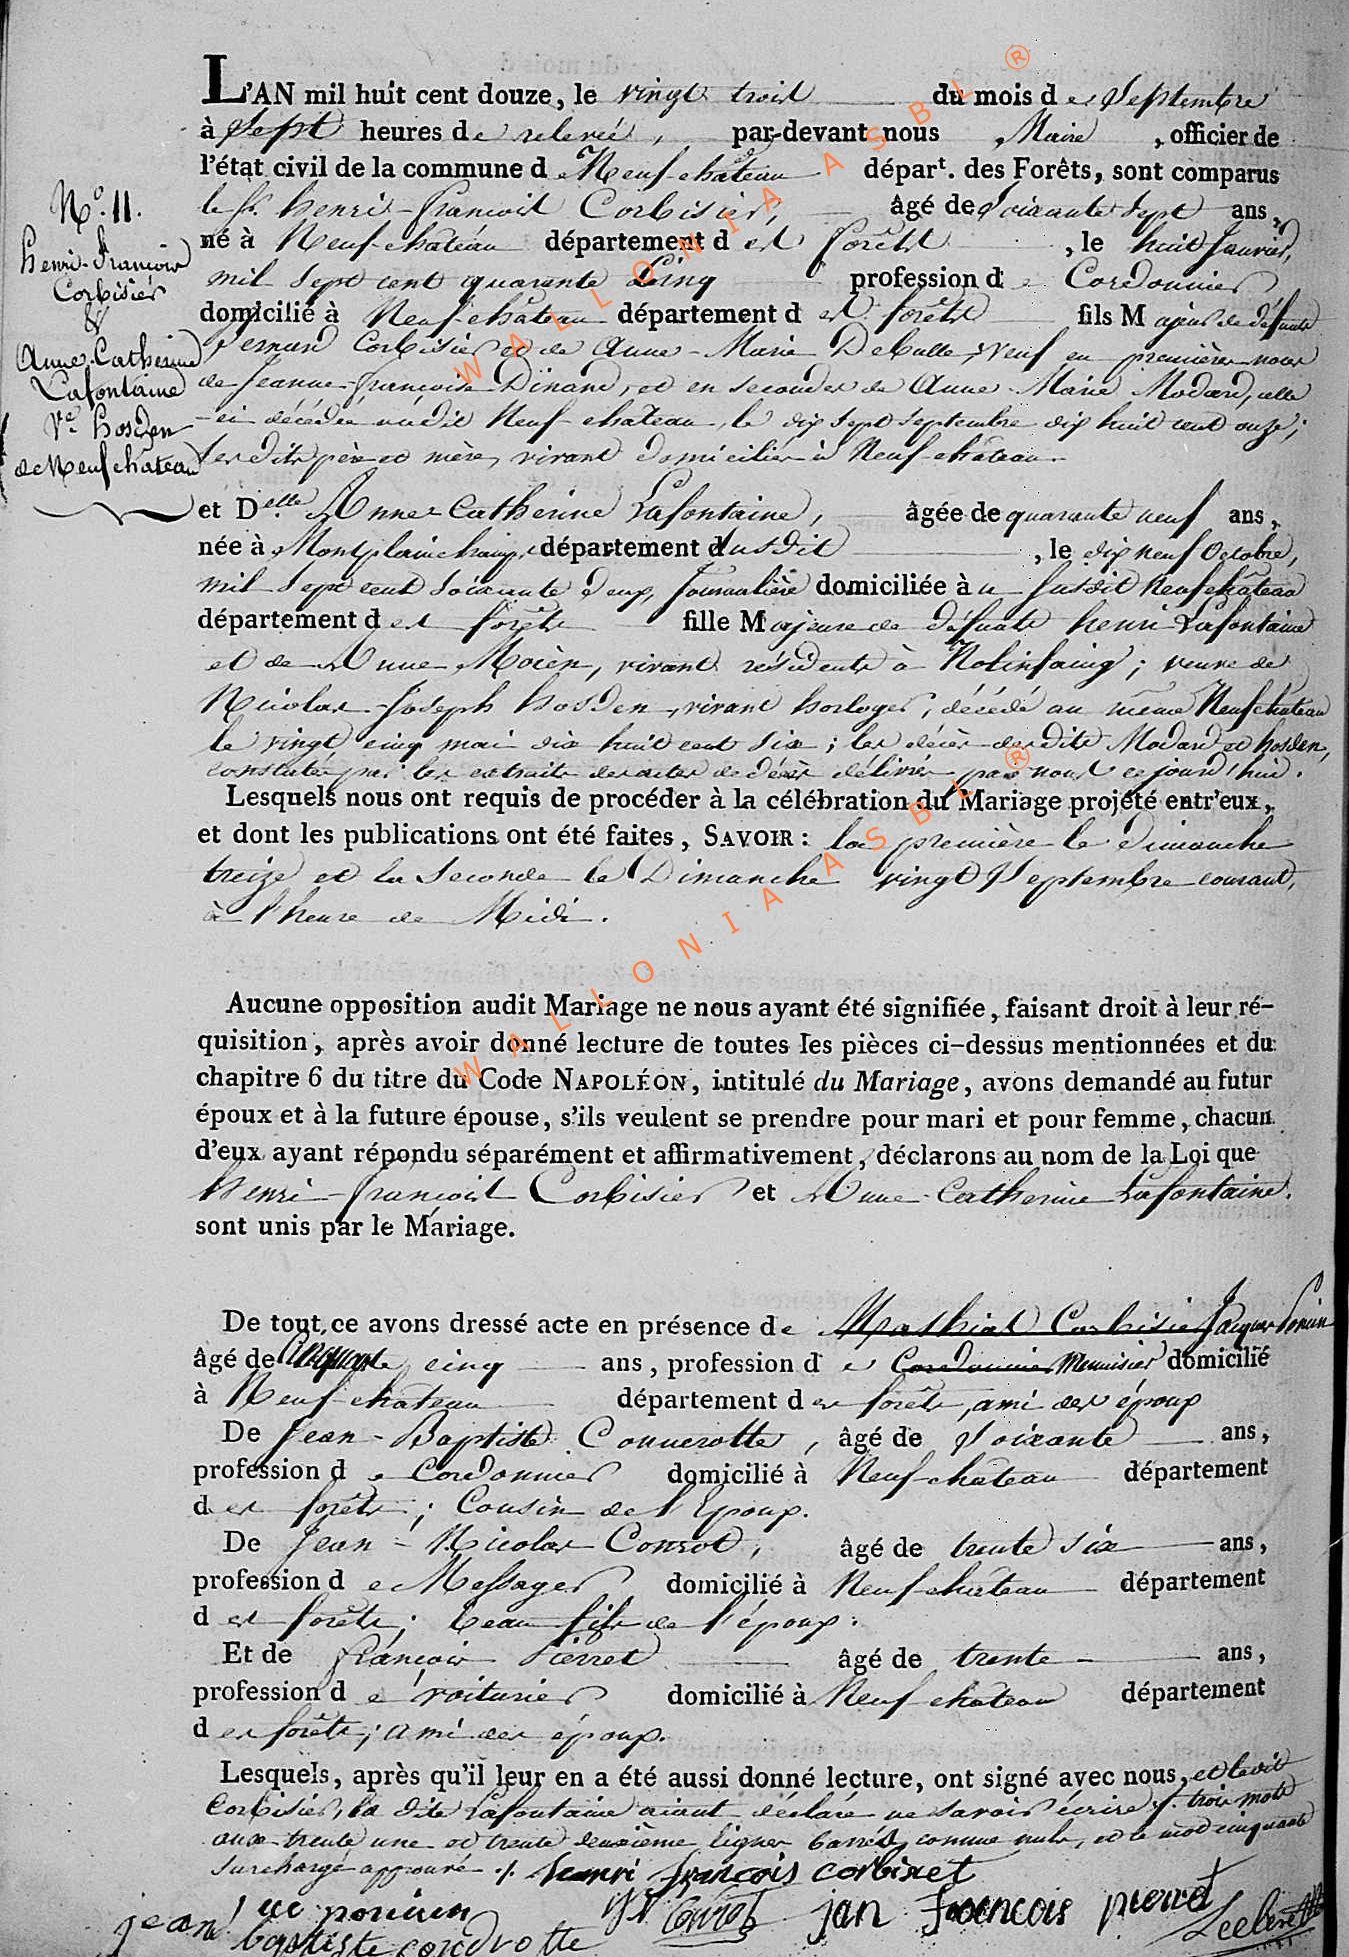 L'AN mil huit cent douze, le vingt trois du mois de Septembre
à Sept heures de relevée, par-devant nous Maire, officier de
l'état civil de la commune de Neufchâteau départ. des Forêts, sont comparus
le Sr. henri-françois Corbisier, âgé de Soixante Sept ans,
né à Neufchateau département des forêts, le huit Janvier,
mil Sept cent quarante Cinq profession de Cordonnier
domicilié à Neufchâteau département des forêts fils Majeur de défunts
Corbisier et de Anne-Marie veuf en premières noces
de Jeanne-françoise Dinand, et en secondes de Anne Marie Modard, celle
-ci décédée audit Neufchateau, le dix Sept Septembre dix huit cent onze;
les dits père et mère, vivant domiciliés à Neufchâteau.
Nº. 11.
Henri-François
Corbisier
&
Anne-Catherine
Lafontaine
Ve. hosden
de Neufchâteau
et Delle. Anne Catherine Lafontaine, âgée de quarante neuf ans,
née à Montplainchamps département dusdit, le dix neuf Octobre,
mil Sept cent Soixante deux, Journalière domiciliée à u Susdit Neufchâteau
département des forêts fille Majeure de défunts henri Lafontaine
et de Anne Moïen, vivant résidents à Nolinfaing; veuve de
Nicolas-Joseph hosden, vivant horloger, décédé au même Neufchâteau
le vingt cinq mai dix huit cent Six; les décès desdits Modard et hosden,
constatés par les extraits des actes de décès délivrés par nous ce jourd'hui.
Lesquels nous ont requis de procéder à la célébration du Mariage projeté entr'eux,
et dont les publications ont été faites, SAVOIR: la première le dimanche
treize et la Seconde le Dimanche vingt Septembre courant,
à l'heure de Midi.
Aucune opposition audit Mariage ne nous ayant été signifiée, faisant droit à leur ré-
quisition, après avoir donné lecture de toutes les pièces ci-dessus mentionnées et du
chapitre 6 du titre du Code NAPOLÉON, intitulé du Mariage, avons demandé au futur
époux et à la future épouse, s'ils veulent se prendre pour mari et pour femme, chacun
d'eux ayant répondu séparément et affirmativement, déclarons au nom de la Loi que
henri-françois Corbisier et Anne-Catherine Lafontaine.
sont unis par le Mariage.
De tout ce avons dressé acte en présence de Mathias Corbisier Jacques
âgé de Cinquante cinq ans, profession de Cordonnier Menuisier domicilié
à Neufchâteau département des forêts, ami des époux
De Jean-Baptiste Connerotte, âgé de Soixante ans,
profession de Cordonnier domicilié à Neufchateau département
des forêts; Cousin de l'Epoux.
De Jean-Nicolas Conrot, âgé de trente Six ans,
profession de Messager domicilié à Neufchâteau département
des forêts; beau fils de l'époux.
Et de françois Pierret âgé de trente ans,
profession de voiturier domicilié à Neufchâteau département
des forêts; ami des époux.
Lesquels, après qu'il leur en a été aussi donné lecture, ont signé avec nous, et ledit
Corbisier, la dite Lafontaine aiant déclaré ne savoir écrire ./. trois mots
aux trente une et trente deuxième lignes barrés, comme nuls, et le mot cinquante
Surchargé approuvé ./. henri françois corbisiet
jean baptiste jan francois pierret
WALLONIA ASBL ®
WALLONIA ASBL ®